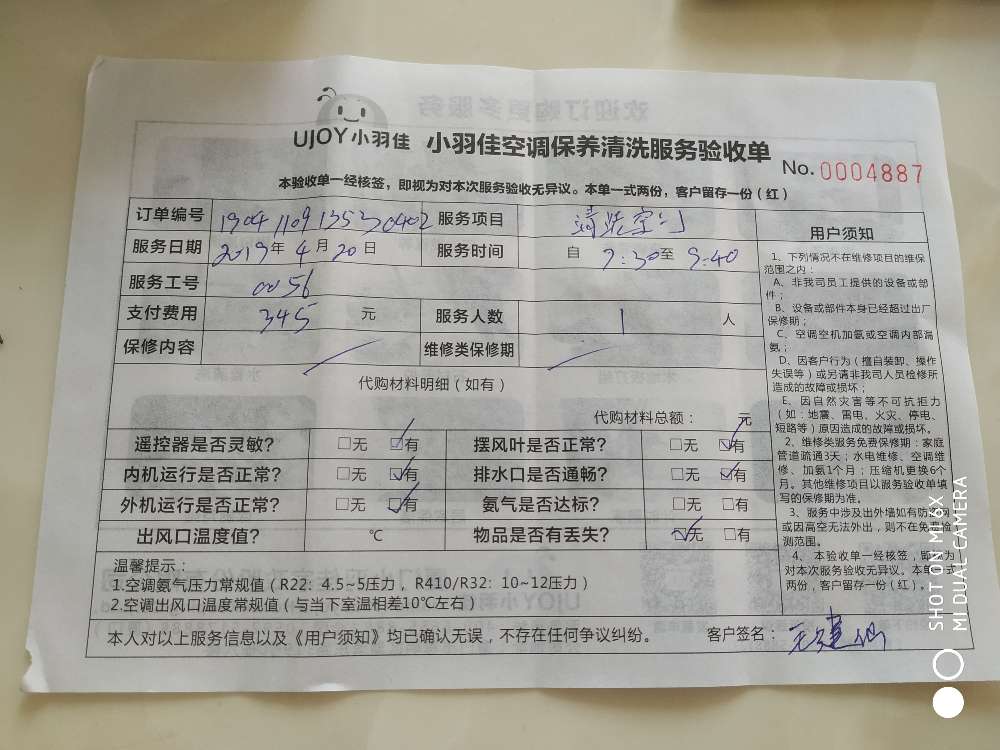 欢迎订购更多服务
UJOY小羽佳 小羽佳空调保养清洗服务验收单
No.0004887
本验收单一经核签，即视为对本次服务验收无异议。本单一式两份，客户留存一份(红)
订单编号 服务项目 清洗空
服务日期 2019年4月20日 服务时间 自 至 9:40
服务工号 0056
支付费用 345 元 服务人数 1 人
保修内容 维修类保修期
代购材料明细（如有）
代购材料总额： 元
遥控器是否灵敏? □无 ☑有 摆风叶是否正常? □无 ☑有
内机运行是否正常? □无 ☑有 排水口是否通畅? □无 ☑有
外机运行是否正常? □无 ☑有 氨气是否达标? □无 □有
出风口温度值? ℃ 物品是否有丢失? ☑无 □有
温馨提示：
1.空调氨气压力常规值（R22：4.5~5压力，R410/R32：10~12压力）
2.空调出风口温度常规值（与当下室温相差10℃左右）
本人对以上服务信息以及《用户须知》均已确认无误，不存在任何争议纠纷。 客户签名：
用户须知
1、下列情况不在维修项目的维保
范围之内：
A、非我司员工提供的设备或部
件；
B、设备或部件本身已经超过出厂
保修期；
C、空调空机加氨或空调内部漏
氨；
D、因客户行为（擅自装卸、操作
失误等）或另请非我司人员检修所
造成的故障或损坏；
E、因自然灾害等不可抗拒力
（如：地震、雷电、火灾、停电、
短路等）原因造成的故障或损坏。
2、维修类服务免费保修期：家庭
管道疏通3天；水电维修、空调维
修、加氨1个月；压缩机更换6个
月。其他维修项目以服务验收单填
写的保修期为准。
3、服务中涉及出外墙如有防
或因高空无法外出，则不在免
测范围。
4、本验收单一经核签，即视为
对本次服务验收无异议。本单一式
两份，客户留存一份(红)。
SHOT ON MI 6X
MI DUAL CAMERA